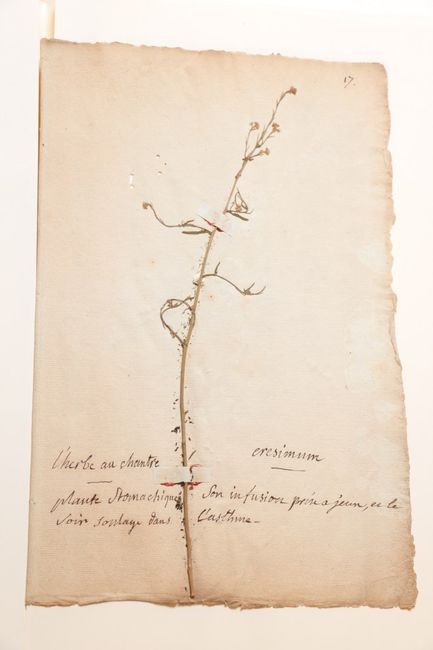 17.
l'herbe au chantre eresimum
plante Stomachique Son infusion prise a jeun, et le
Soir soulage dans l'asthme -